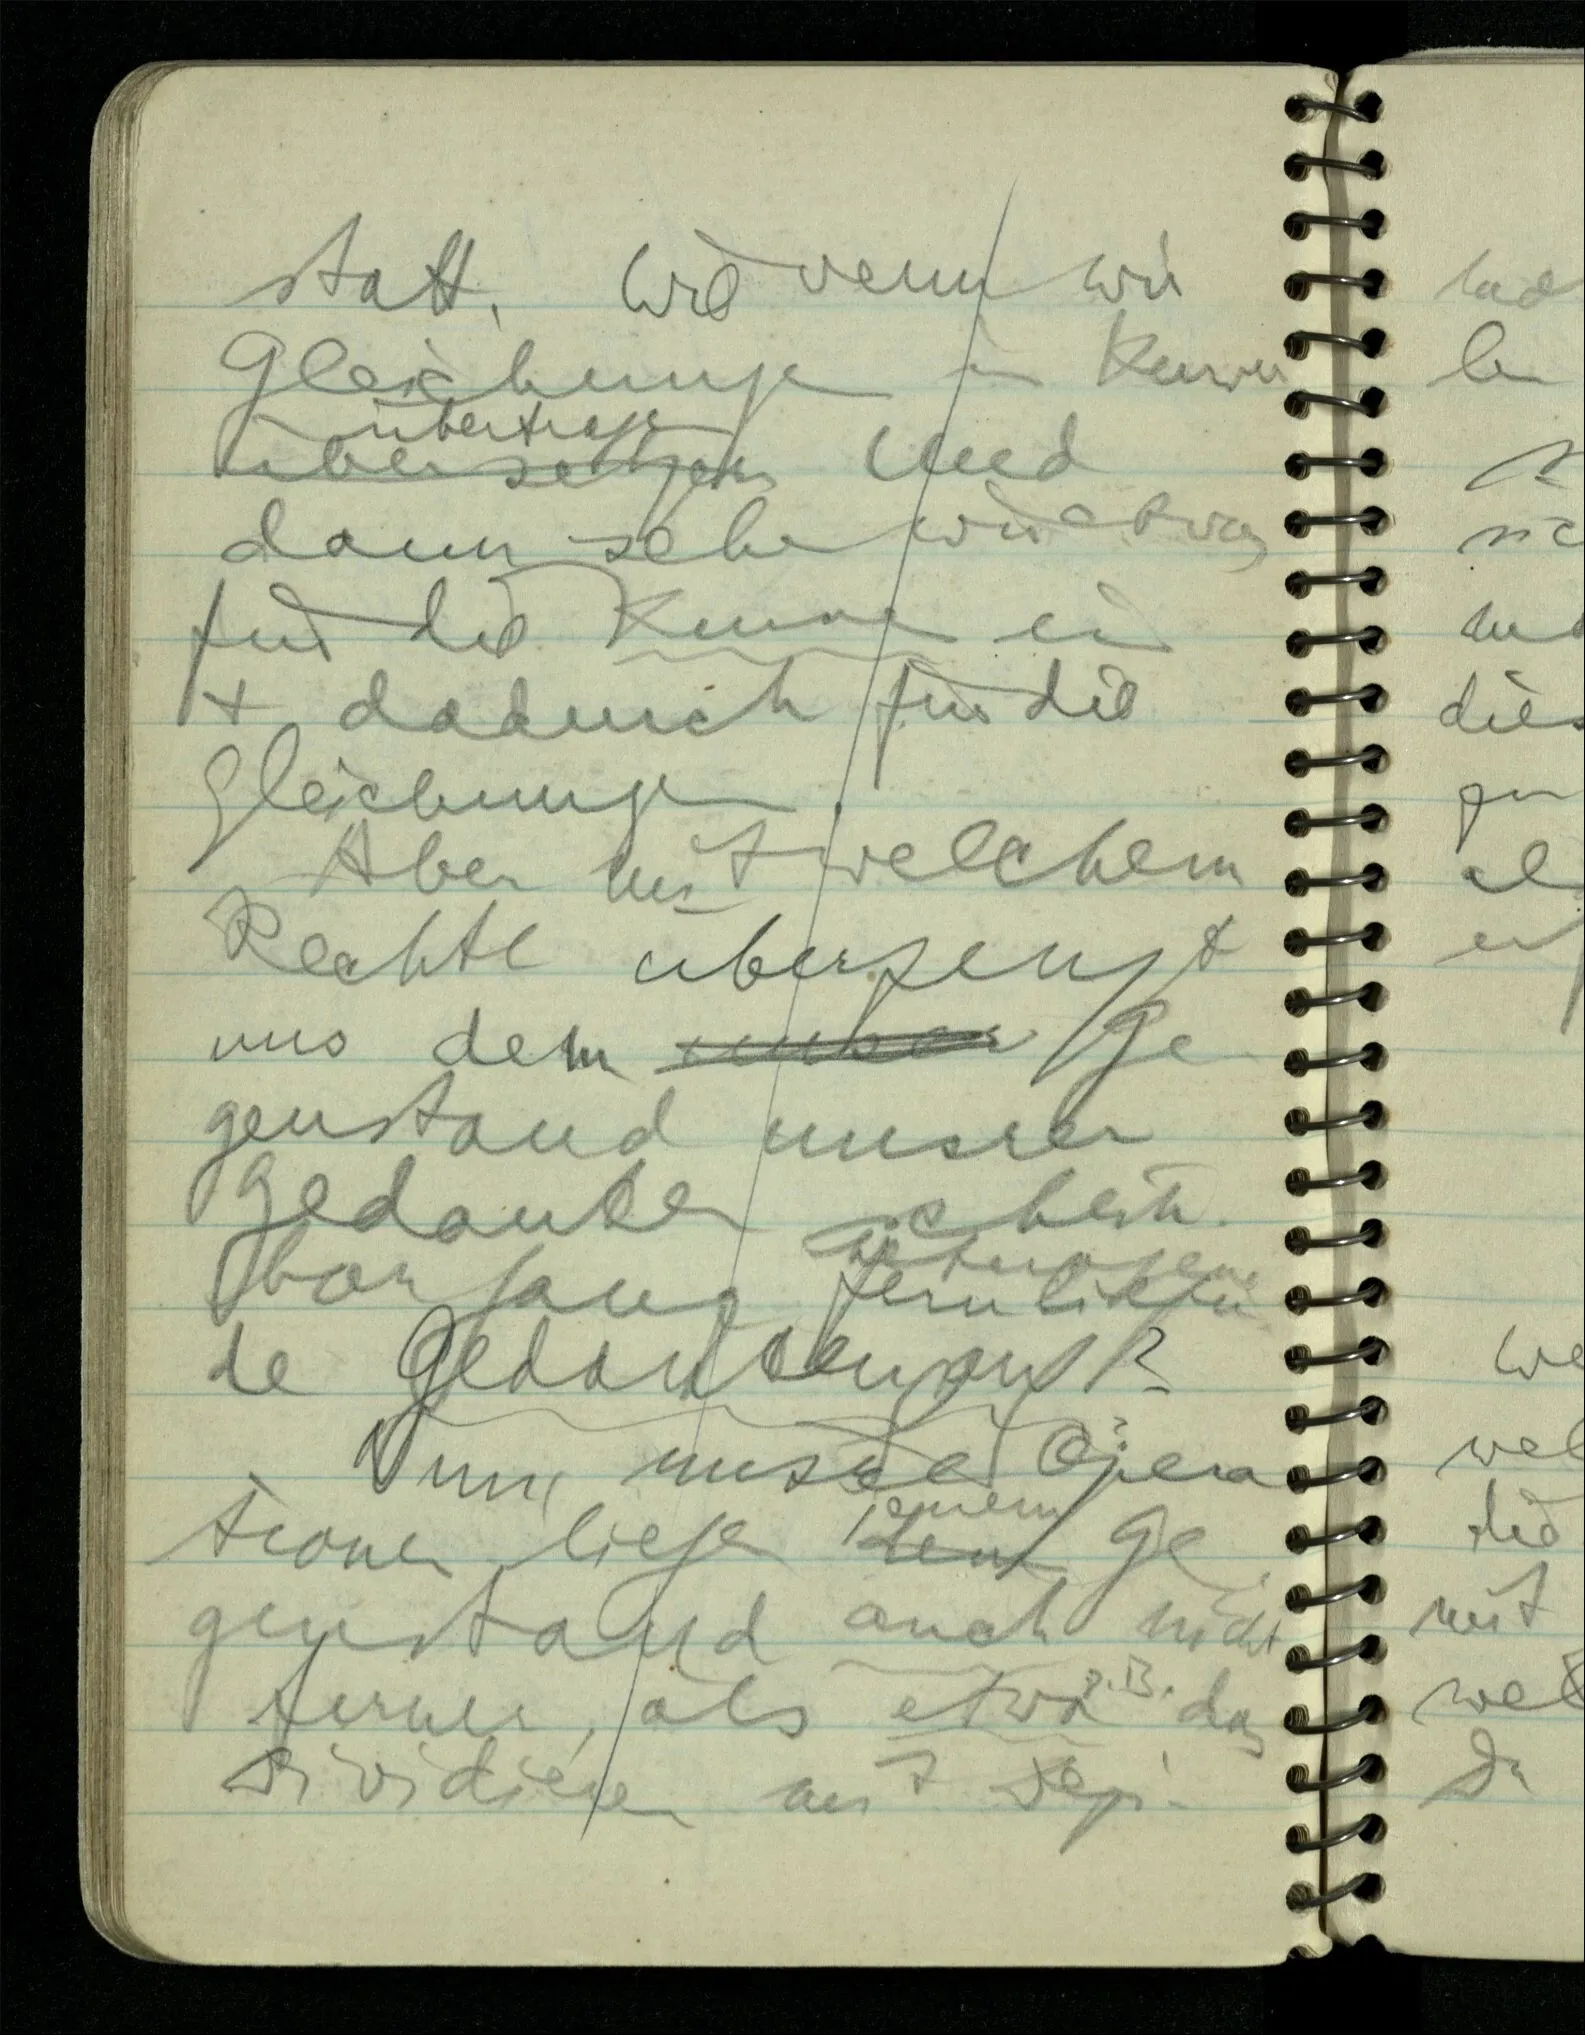 statt. Wie wenn wir
Gleichungen in Kurven
übertragen
übersetzen und
dann sehen wir etwas
für die Kurven ein
+ dadurch für die
Gleichungen.
Aber mit welchem
Rechte überzeugt
uns dem unser Ge
genstand unsrer
Gedanken scheinbar
fernliegen
de Gedankengang?
Nun, unsere Opera
jenem
tionen liegen dem Ge
genstand auch nicht
ferner, als etwa z.B. das
Dividieren mit Dezi-
die
mit